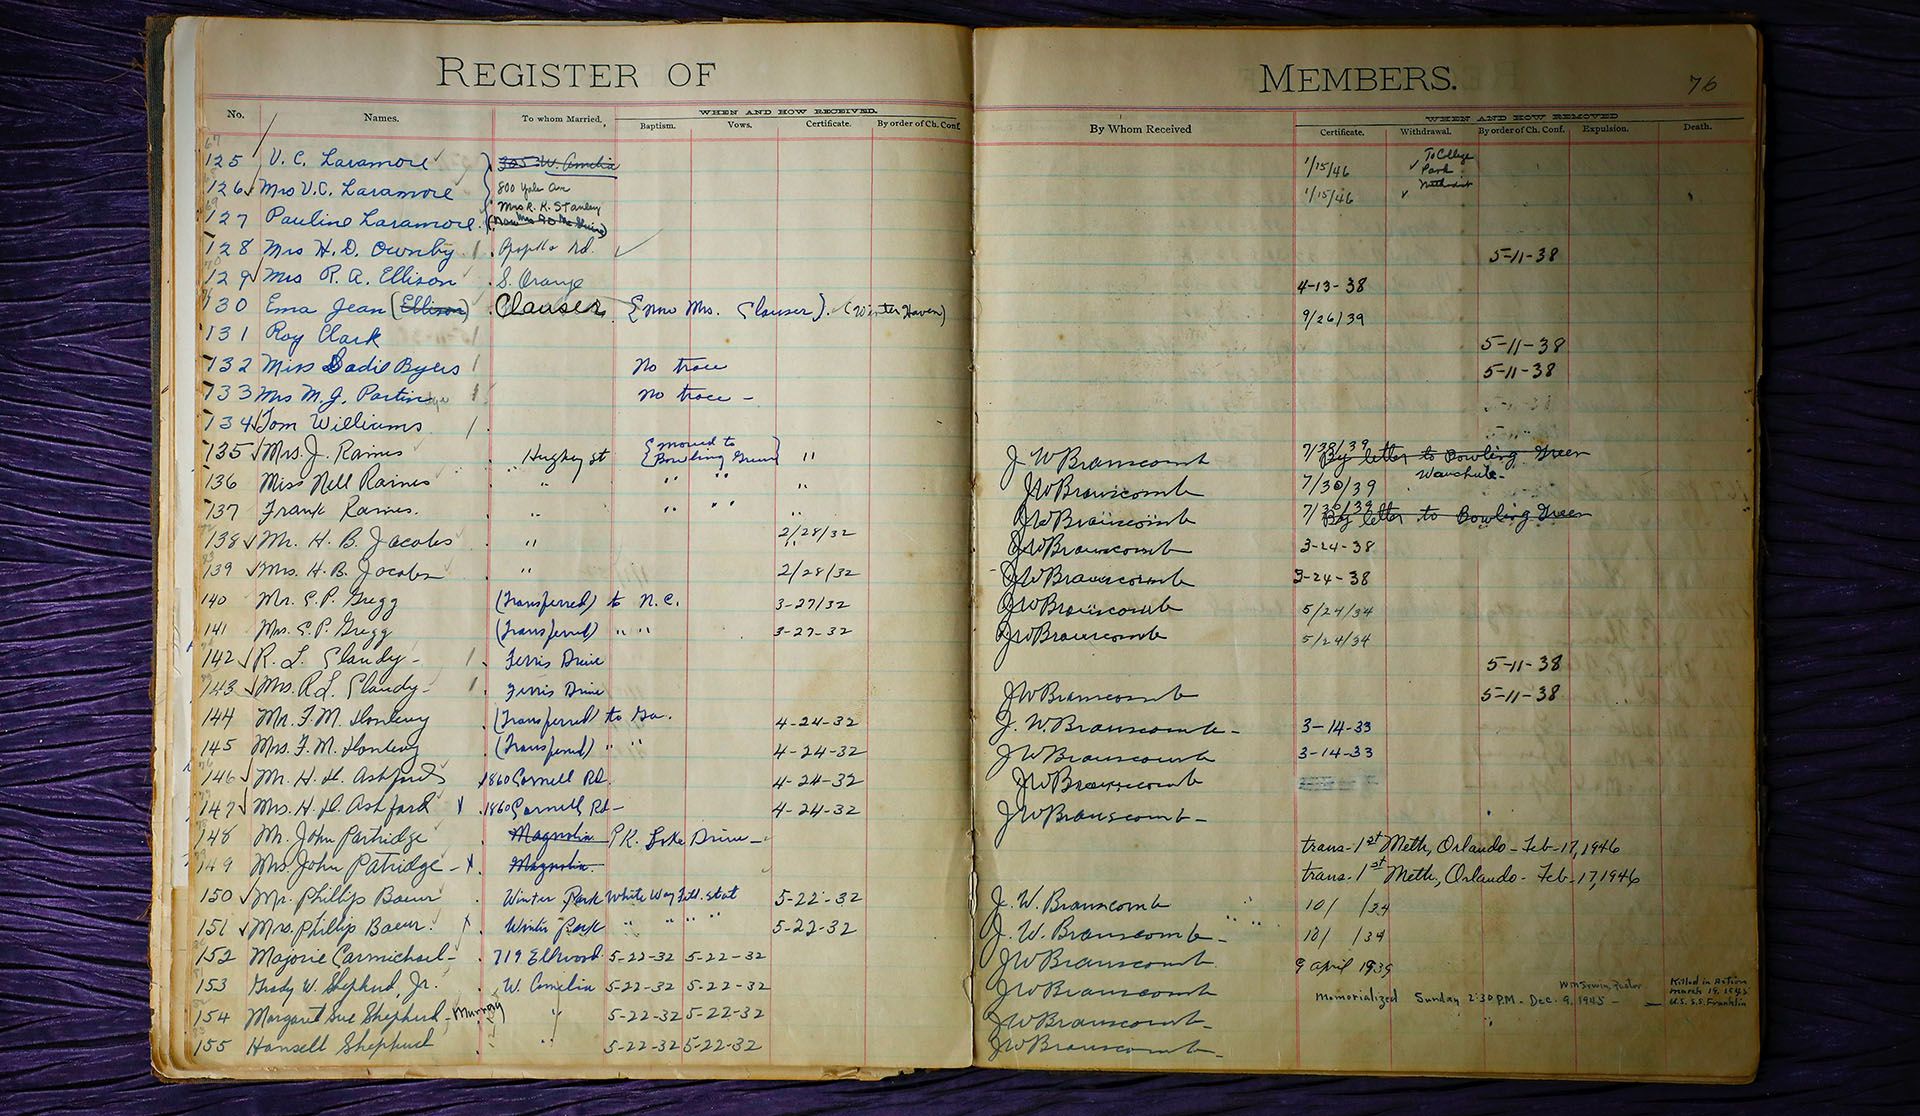 REGISTER OF MEMBERS. 76
No. Names. To whom Married. WHEN AND HOW RECEIVED. By Whom Received WHEN AND HOW REMOVED
Baptism. Vows. Certificate. By order of Ch. Conf. Certificate. Withdrawal. By order of Ch. Conf. Expulsion. Death.
125 V. C. Laramore 305 W. Amelia 1/15/46 To College Park
126 Mrs V.C. Laramore 800 Yale Ave 1/15/46 Methodist
Mrs R. K. Stanley
127 Pauline Laramore
128 Mrs H. D. Ownby Apopka Rd. 5-11-38
129 Mrs R. A. Ellison S. Orange 4-13-38
130 Ema Jean (Ellison) Clauser (now Mrs. Clauser). (Winter Haven) 9/26/39
131 Roy Clark 5-11-38
132 Miss Sadie Byers No trace 5-11-38
133 Mrs M. J. Partin No trace -
134 Tom Williams
135 Mrs. J. Raines Hughey St (moved to Bowling Green) " J W Branscomb 7/30/39 By letter to Bowling Green
136 Miss Nell Raines " " " " J W Branscomb 7/30/39 Wauchula-
137 Frank Raines. " " " " J W Branscomb 7/30/39 By letter to Bowling Green
138 Mr. H. B. Jacobs " 2/28/32 J W Branscomb 3-24-38
139 Mrs. H. B. Jacobs " 2/28/32 J W Branscomb 3-24-38
140 Mr. E. P. Gregg (Transferred) to N.C. 3-27/32 J W Branscomb 5/24/34
141 Mrs. E. P. Gregg (Transferred) " " 3-27-32 J W Branscomb 5/24/34
142 R. L. Claudy- Ferris Drive 5-11-38
143 Mrs. R L. Claudy- Ferris Drive J W Branscomb 5-11-38
144 Mr. F. M. (Transferred) to Ga. 4-24-32 J. W. Branscomb- 3-14-33
145 Mrs. F. M. (Transferred) " " 4-24-32 J W Branscomb 3-14-33
146 Mr. H. H. Ashford 1860 Cornell Rd. 4-24-32 J W Branscomb
147 Mrs. H. H. Ashford x 1860 Cornell Rd- 4-24-32 J W Branscomb-
148 Mr. John Partridge Magnolia PK. Lake Drive- trans-1st Meth, Orlando-Feb-17, 1946
149 Mrs. John Patridge-x. Magnolia. trans-1st Meth., Orlando-Feb-17, 1946
150 Mr. Phillip Baeur Winter Park White Way Fill. stat 5-22-32 J. W. Branscomb 10/ /34
151 Mrs. Phillip Baeur. x Winter Park " " " " 5-22-32 J. W. Branscomb- 10/ /34
152 Marjorie Carmichael- 719 Ellwood 5-22-32 5-22-32 J W Branscomb. 9 April 1939
153 Grady W. Shepherd, Jr. W. Amelia 5-22-32 5-22-32 J W Branscomb Memorialized Sunday 2:30 P.M.-Dec. 9, 1945- Killed in Action March 19, 1945 U.S.S. Franklin
154 Margaret Sue Shepherd-Murray " 5-22-32 5-22-32 J W Branscomb-
155 Hansell Shepherd " 5-22-32 5-22-32 J W Branscomb-